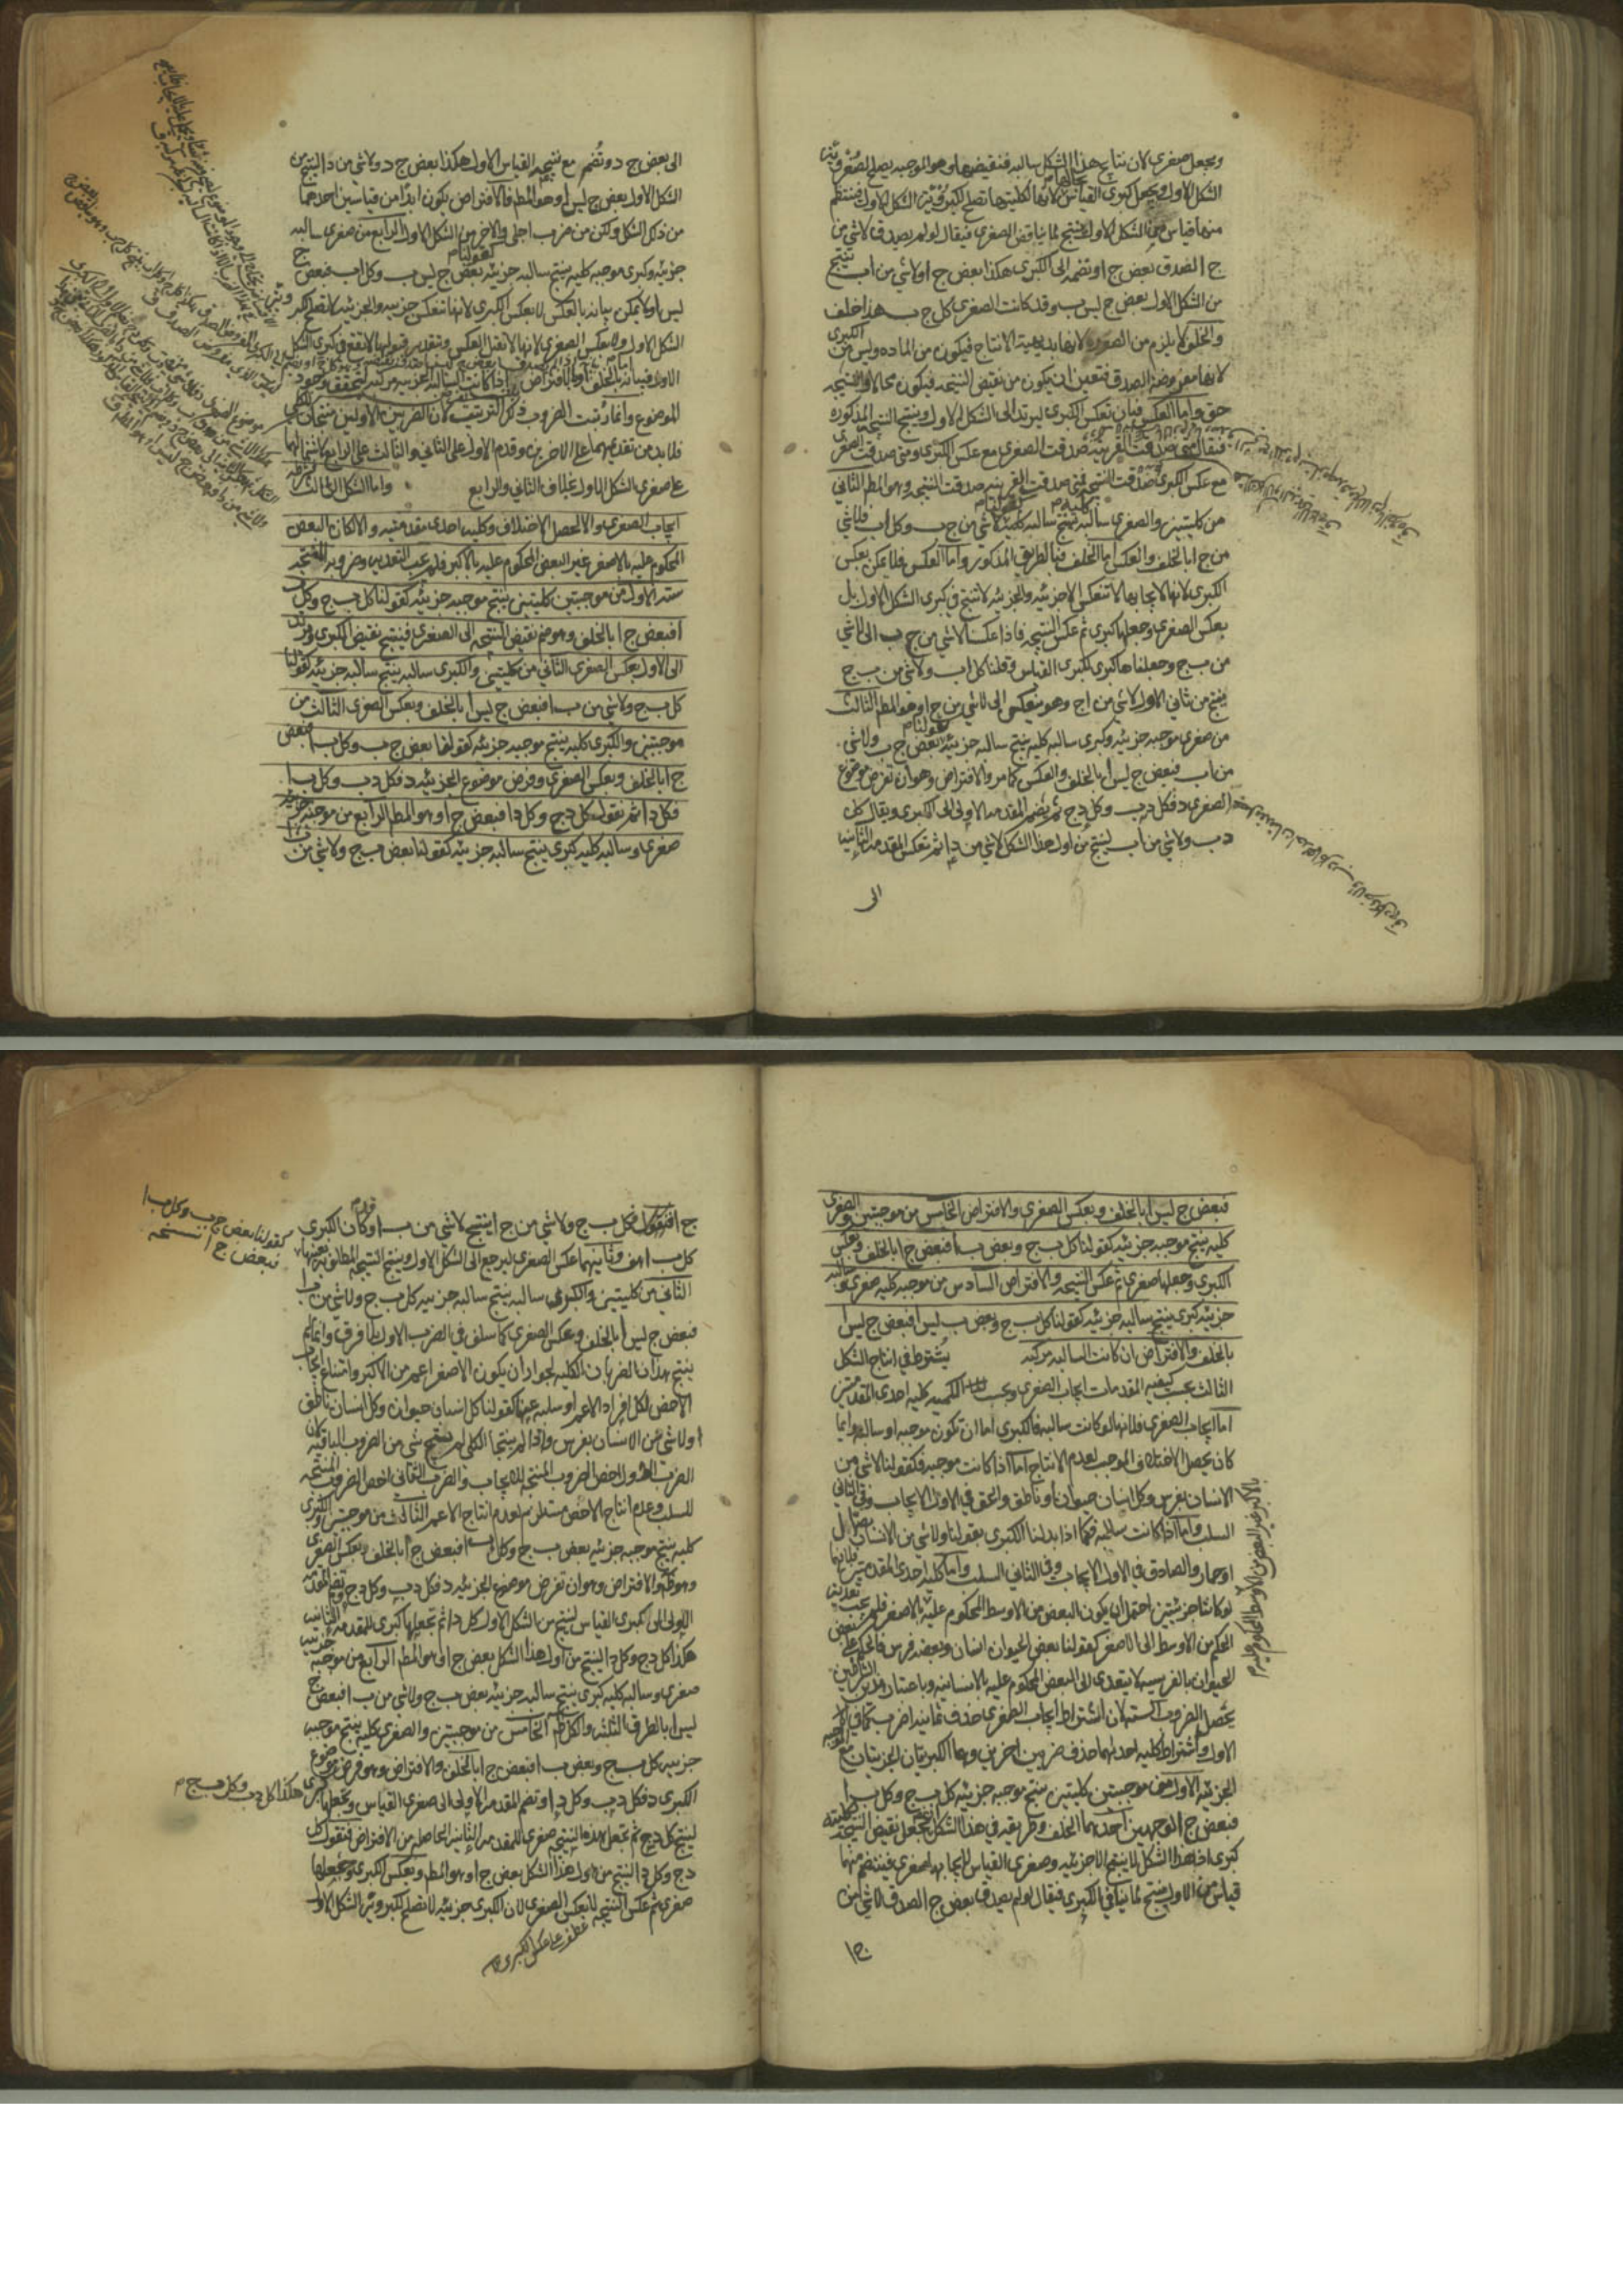 ويجعل صغرى لان نتايج هذا الشكل سالبه فنقيضها وهو الموجبه يصلح لصغروية
الشكل الاول ويجعل كبرى القياس لانها لكليتها تصلح لكبروية الشكل الاول فينتظم
منهما قياس في الشكل الاول ينتج لما يناقض الصغرى فيقال لو لم يصدق لاشي من
ج ا لصدق بعض ج ا ونضمه الى الكبرى هكذا بعض ج ا ولاشي من ا ب ينتج
من الشكل الاول بعض ج ليس ب وقد كانت الصغرى كل ج ب هذا خلف
والخلف لا يلزم من الصوره لانها بديهية الانتاج فيكون من الماده وليس من الكبرى
لانها مفروضة الصدق فتعين ان يكون من نقيض النتيجه فيكون محالا والنتيجه
حق واما العكس فبان تعكس الكبرى ليرتد الى الشكل الاول وينتج النتيجة المذكوره
فيقال متى صدقت القرينه صدقت الصغرى مع عكس الكبرى ومتى صدقت الصغرى
مع عكس الكبرى صدقت النتيجه فمتى صدقت القرينه صدقت النتيجه وهو المط الثاني
من كليتين والصغرى سالبه ينتج سالبه كليه كقولنا لاشي من ج ب وكل ا ب فلاشي
من ج ا بالخلف والعكس اما الخلف فبالطريق المذكور واما العكس فلا يمكن بعكس
الكبرى لانها لايجابها لا تنعكس الا جزئيه والجزئيه لا تنتج في كبرى الشكل الاول بل
بعكس الصغرى وجعلها كبرى ثم عكس النتيجه فاذا عكسنا لاشي من ج ب الى لاشي
من ب ج وجعلناها كبرى لكبرى القياس وقلنا كل ا ب ولاشي من ب ج
ينتج من ثاني الاول لاشي من ا ج وهو ينعكس الى لاشي من ج ا وهو المط الثالث
من صغرى موجبه جزئيه وكبرى سالبه كليه ينتج سالبه جزئيه كقولنا بعض ج ب ولاشي
من ا ب فبعض ج ليس ا بالخلف والعكس كما مر والافتراض وهو ان نفرض موضوع
الصغرى د فكل د ب وكل د ج ثم نضم المقدمه الاولى الى الكبرى ويقال كل
د ب ولاشي من ا ب لينتج من اول هذا الشكل لاشي من د ا ثم نعكس المقدمه الثانيه
الى
الى بعض ج د ونضم مع نتيجة القياس الاول هكذا بعض ج د ولاشي من د ا لينتج من
الشكل الاول بعض ج ليس ا وهو المط فالافتراض يكون ابدا من قياسين احدهما
من ذلك الشكل ولكن من ضرب اجلى والاخر من الشكل الاول الرابع من صغرى سالبه
جزئيه وكبرى موجبه كليه ينتج سالبه جزئيه كقولنا بعض ج ليس ب وكل ا ب فبعض ج
ليس ا ولا يمكن بيانه بالعكس لا بعكس الكبرى لانها تنعكس جزئيه والجزئيه لا تصلح لكبروية
الشكل الاول ولا بعكس الصغرى لانها لا تقبل العكس وبتقدير قبولها لا تقع في كبرى الشكل
الاول فبيانه بالخلف او بالافتراض اذا كانت السالبه مركبه ليتحقق وجود
الموضوع وانما رتبت الضروب ذلك الترتيب لان الضربين الاولين منتجان للكلي
فلا بد من تقديمهما على الاخرين وقدم الاول على الثاني والثالث على الرابع لاشتمالهما
على صغرى الشكل الاول بخلاف الثاني والرابع واما الشكل الثالث فشرطه
ايجاب الصغرى والا لحصل الاختلاف وكلية احدى مقدمتيه والا لكان البعض
المحكوم عليه بالاصغر غير البعض المحكوم عليه بالاكبر فلم يجب التعديه وضروبه المنتجه
سته الاول من موجبتين كليتين ينتج موجبه جزئيه كقولنا كل ب ج وكل ب
ا فبعض ج ا بالخلف وهو ضم نقيض النتيجه الى الصغرى فينتج نقيض الكبرى وبالرد
الى الاول بعكس الصغرى الثاني من كليتين والكبرى سالبه ينتج سالبه جزئيه كقولنا
كل ب ج ولاشي من ب ا فبعض ج ليس ا بالخلف وبعكس الصغرى الثالث من
موجبتين والكبرى كليه ينتج موجبه جزئيه كقولنا بعض ج ب وكل ب ا فبعض
ج ا بالخلف وبعكس الصغرى وفرض موضوع الجزئيه د فكل د ب وكل ب ا
فكل د ا ثم نقول كل د ج وكل د ا فبعض ج ا وهو المط الرابع من موجبه جزئيه
صغرى وسالبه كليه كبرى ينتج سالبه جزئيه كقولنا بعض ب ج ولاشي من ب ا
فبعض ج ليس ا بالخلف وبعكس الصغرى والافتراض الخامس من موجبتين والصغرى
كليه ينتج موجبه جزئيه كقولنا كل ب ج وبعض ب ا فبعض ج ا بالخلف وبعكس
الكبرى وجعلها صغرى ثم عكس النتيجه والافتراض السادس من موجبه كليه صغرى وسالبه
جزئيه كبرى ينتج سالبه جزئيه كقولنا كل ب ج وبعض ب ليس ا فبعض ج ليس ا
بالخلف والافتراض ان كانت السالبه مركبه يشترط في انتاج الشكل
الثالث بحسب كيفيه المقدمات ايجاب الصغرى وبحسب الكميه كليه احدى المقدمتين
اما ايجاب الصغرى فلانها لو كانت سالبه فالكبرى اما ان تكون موجبه او سالبه وايا ما
كان يحصل الاختلاف الموجب لعدم الانتاج اما اذا كانت موجبه فكقولنا لاشي من
الانسان بفرس وكل انسان حيوان او ناطق والحق في الاول الايجاب وفي الثاني
السلب واما اذا كانت سالبه فكما اذا بدلنا الكبرى بقولنا ولاشي من الانسان بصهال
او حمار والصادق في الاول الايجاب وفي الثاني السلب واما كلية احدى المقدمتين فلانهما
لو كانتا جزئيتين احتمل ان يكون البعض من الاوسط المحكوم عليه بالاصغر فلم يجب تعديه
الحكم من الاوسط الى الاصغر كقولنا بعض الحيوان انسان وبعضه فرس فالحكم على بعض
الحيوان بالفرسيه لا يتعدى الى البعض المحكوم عليه بالانسانيه وباعتبار هذين الشرطين
يحصل الضروب السته لان اشتراط ايجاب الصغرى حذف ثمانيه اضرب كما في
الاول واشتراط كليه احديهما حذف ضربين اخرين وهما الكبريتان الجزئيتان مع الموجبه
الجزئيه الاول من موجبتين كليتين ينتج موجبه جزئيه كل ب ج وكل ب ا
فبعض ج ا لوجهين احدهما الخلف وطريقه في هذا الشكل ان يجعل نقيض النتيجه لكليته
كبرى اذ هذا الشكل لا ينتج الا جزئيه وصغرى القياس لايجابها صغرى فينتظم منهما
قياس من الاول منتج لما ينافي الكبرى فيقال لو لم يصدق بعض ج ا لصدق لاشي من
ج ا
بالاكبر غير البعض من الاوسط المحكوم عليه
ج ا فنقول كل ب ج ولاشي من ج ا ينتج لاشي من ب ا وكان الكبرى
كل ب ا هف وثانيهما عكس الصغرى ليرجع الى الشكل الاول وينتج النتيجه المطلوبه بعينها
الثاني من كليتين والكبرى سالبه ينتج سالبه جزئيه كل ب ج ولاشي من ب ا
فبعض ج ليس ا بالخلف وبعكس الصغرى كما سلف في الضرب الاول بلا فرق وانما لم
ينتج هذان الضربان الكليه لجواز ان يكون الاصغر اعم من الاكبر وامتناع ايجاب
الاخص لكل افراد الاعم او سلبه عنها كقولنا كل انسان حيوان وكل انسان ناطق
او لاشي من الانسان بفرس واذا لم ينتجا الكلي لم ينتج شي من الضروب الباقيه لان
الضرب الاول اخص الضروب المنتجه للايجاب والضرب الثاني اخص الضروب المنتجه
للسلب وعدم انتاج الاخص مستلزم لعدم انتاج الاعم الثالث من موجبتين والكبرى
كليه ينتج موجبه جزئيه بعض ب ج وكل ب ا فبعض ج ا بالخلف وبعكس الصغرى
وهو ظ والافتراض وهو ان نفرض موضوع الجزئيه د فكل د ب وكل د ج ونضم المقدمه
الاولى الى كبرى القياس لينتج من الشكل الاول كل د ا ثم نجعلها كبرى للمقدمه الثانيه
هكذا كل د ج وكل د ا لينتج من اول هذا الشكل بعض ج ا وهو المط الرابع من موجبه جزئيه
صغرى وسالبه كليه كبرى ينتج سالبه جزئيه بعض ب ج ولاشي من ب ا فبعض ج
ليس ا بالطرق الثلثه والكل ظ الخامس من موجبتين والصغرى كليه ينتج موجبه
جزئيه كل ب ج وبعض ب ا فبعض ج ا بالخلف والافتراض وهو فرض موضوع
الكبرى د فكل د ب وكل د ا ونضم المقدمه الاولى الى صغرى القياس ونجعلها كبرى
هكذا كل د ب وكل ب ج
لينتج كل د ج ثم نجعل هذه النتيجه صغرى للمقدمه الثانيه الحاصله من الافتراض فنقول كل
د ج وكل د ا لينتج من اول هذا الشكل بعض ج ا وهو المط وبعكس الكبرى وجعلها
صغرى ثم عكس النتيجه لا بعكس الصغرى لان الكبرى جزئيه لا تصلح لكبروية الشكل الاول
عطف على عكس الكبرى
كقولنا بعض ج ب وكل ب ا
فبعض ج ا نسخه